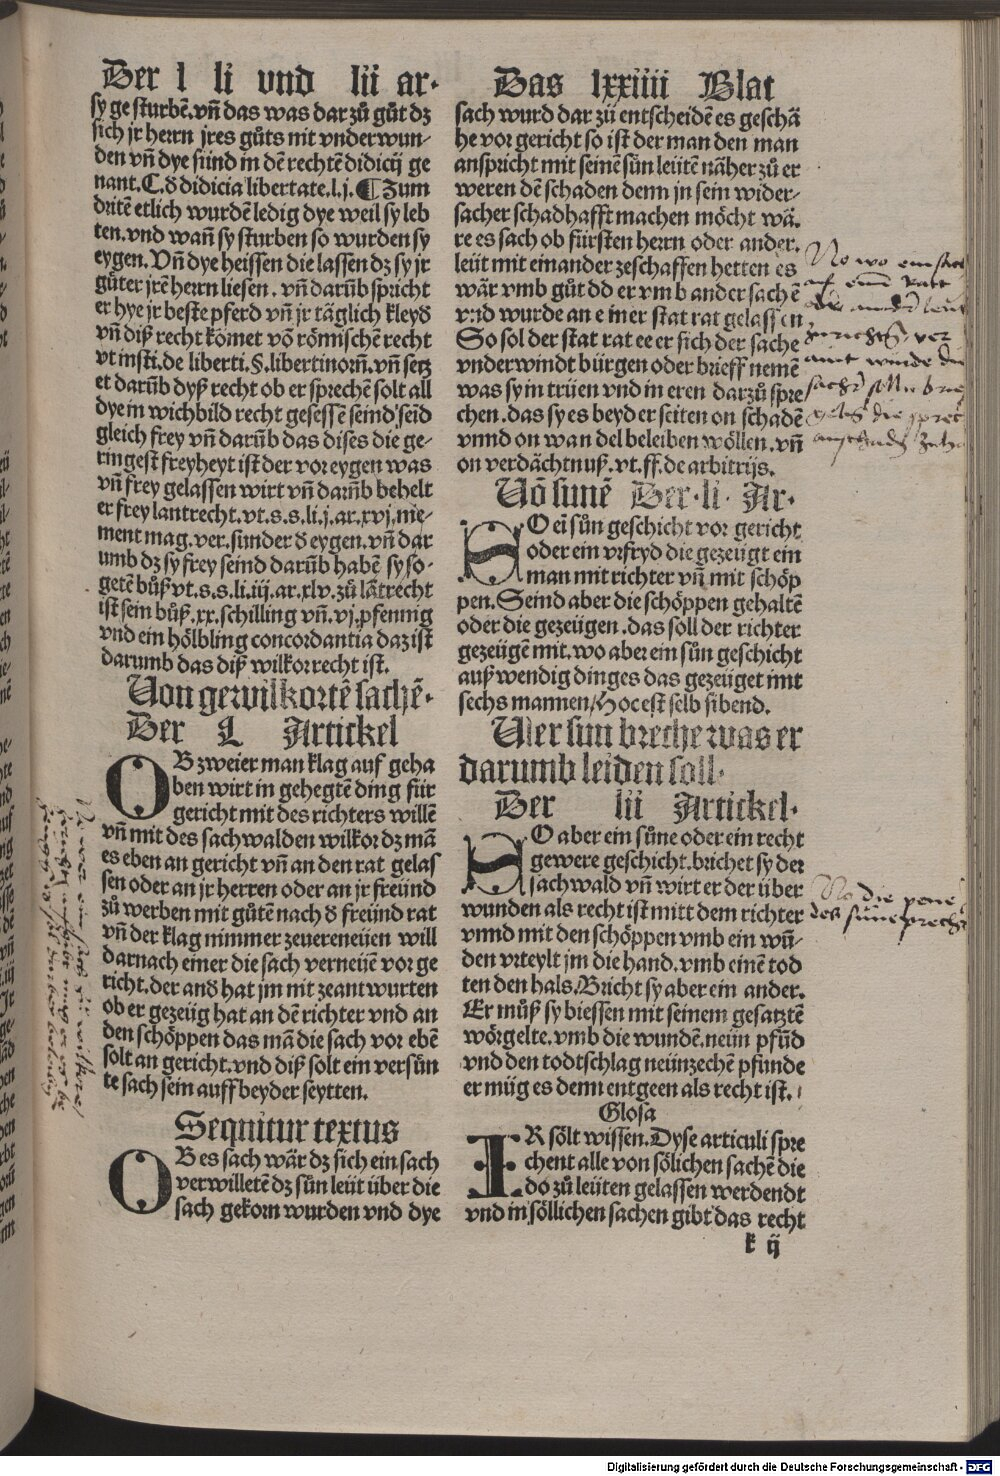 Der l li vnd lii ar·
sy ge sturbẽ.vñ das was dar zů gůt dz
sich jr herrn jres gůts nit vnderwun-
den vñ dye siind in dẽ rechtẽ didicij ge
nant. C. d didicia libertate.l.j. ¶ Zum
dritẽ etlich wurdẽ ledig dye weil sy leb
ten.vnd wañ sy sturben so wurden sy
eygen. Vñ dye heissen die lassen dz sy jr
gůter jrẽ herrn liesen. vñ darũb spricht
er hye jr beste pferd vñ jr täglich kleyd
vñ diß recht kömet võ römischẽ recht
vt insti.de liberti.§.libertinorũ.vñ setz
et darũb dyß recht ob er sprechẽ solt all
dye in wichbild recht gesessẽ seind seid
gleich frey vñ darũb das dises die ge-
ringest freyheyt ist der vor eygen was
vñ frey gelassen wirt vñ darũb behelt
er frey lantrecht.vt.s.s.li.j.ar.xvj.nie-
ment mag.ver.sünder d eygen.vñ dar
umb dz sy frey seind darũb habẽ sy so-
getẽ bůß vt.s.s.li.iij.ar.xlv.zů lãtrecht
ist sein bůß.xx.schilling vñ.vj.pfennig
vnd ein hölbling concordantia daz ist
darumb das diß wilkor recht ist.
Von gewilkortẽ sachẽ·
Der L Artickel
OB zweier man klag auf geha
ben wirt in gehegtẽ ding für
gericht mit des richters willẽ
vñ mit des sachwalden wilkor dz mã
es eben an gericht vñ an den rat gelas
sen oder an jr herren oder an jr freünd
zů werben mit gůtẽ nach d freünd rat
vñ der klag nimmer zeuereneüen will
darnach einer die sach verneüẽ vor ge
richt.der and hat jm nit zeantwurten
ob er gezeüg hat an dẽ richter vnd an
den schöppen das mã die sach vor ebẽ
solt an gericht.vnd diß solt ein versün
te sach sein auff beyder seytten.
Sequitur textus
OB es sach wär dz sich ein sach
verwilletẽ dz sün leüt über die
sach gekom wurden vnd dye
Das lxxiiii Blat
sach wurd dar zů entscheidẽ es geschä
he vor gericht so ist der man den man
anspricht mit seinẽ sün leütẽ näher zů er
weren dẽ schaden denn jn sein wider-
sacher schadhafft machen möcht wä.
re es sach ob fürsten herrn oder ander.
leüt mit einander zeschaffen hetten es
wär vmb gůt dd er vmb ander sachẽ
vnd wurde an einer stat rat gelassen
So sol der stat rat ee er sich der sache
vnderwindt bürgen oder brieff nemẽ
was sy in trüen vnd in eren darzů spre
chen.das sy es beyder seiten on schadẽ
vnnd on wandel beleiben wöllen.vñ
on verdächtnuß.vt.ff.de arbitrijs.
Võ sünẽ Der·li· Ar·
SO ei sün geschicht vor gericht
oder ein vrfryd die gezeügt ein
man mit richter vñ mit schöp
pen.Seind aber die schöppen gehaltẽ
oder die gezeügen.das soll der richter
gezeügẽ mit.wo aber ein sün geschicht
außwendig dinges das gezeüget mit
sechs mannen/Hoc est selb sibend.
Wer sün breche was er
darumb leiden soll·
Der lii Artickel·
SO aber ein süne oder ein recht
gewere geschicht.brichet sy der
sachwald vñ wirt er der über
wunden als recht ist mitt dem richter
vnnd mit den schöppen vmb ein wũ-
den vrteylt jm die hand.vmb einẽ tod
ten den hals.Bricht sy aber ein ander.
Er můß sy biessen mit seinem gesatztẽ
wörgelte.vmb die wundẽ.neün pfũd
vnd den todtschlag neünzechẽ pfunde
er müg es denn entgeen als recht ist.
Glosa
IR sölt wissen.Dyse articuli spre
chent alle von sölichen sachẽ die
do zů leüten gelassen werdendt
vnd in söllichen sachen gibt das recht
k ij
No die pene
des süne
Digitalisierung gefördert durch die Deutsche Forschungsgemeinschaft - DFG